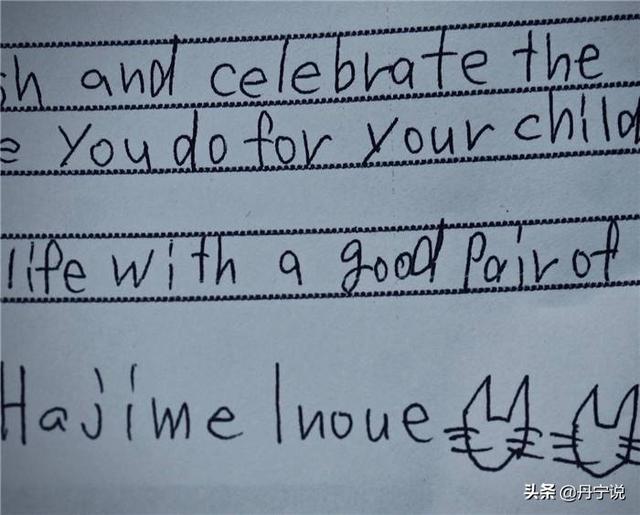 sh and celebrate the
e You do for your child
life with a good Pair of
Hajime Inoue
头条 @丹宁说